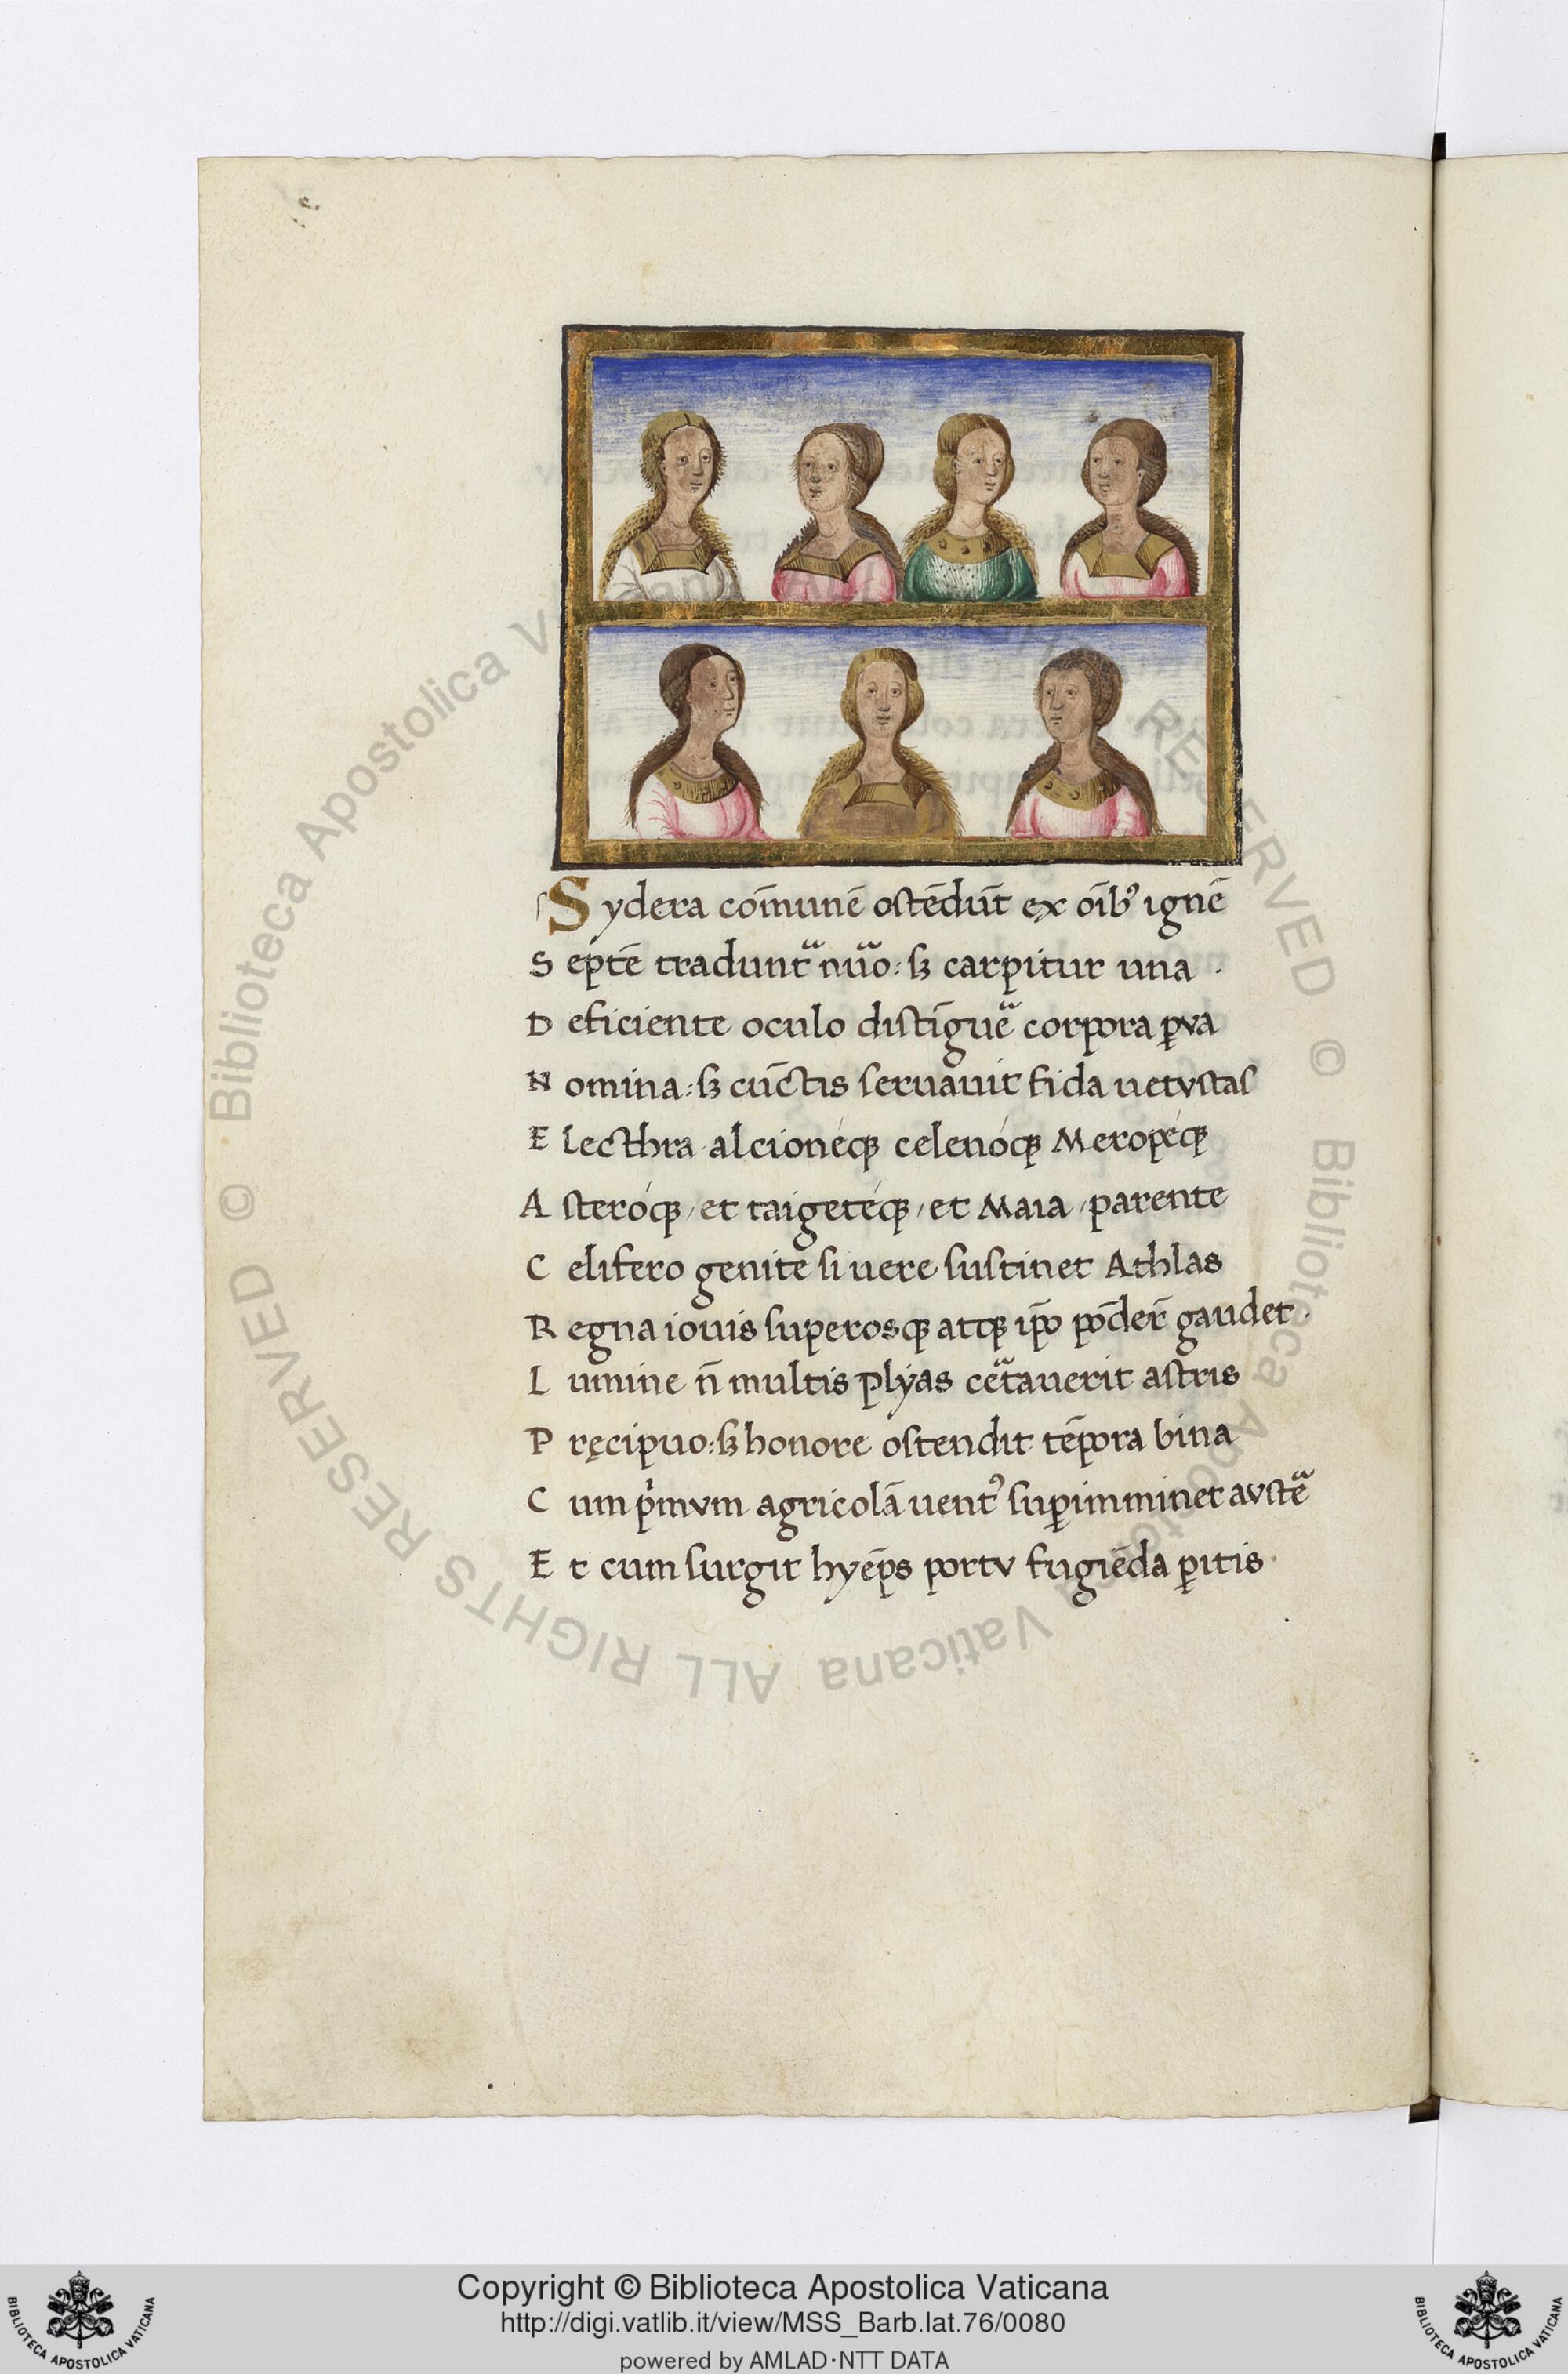 Sydera cōmunē ostēdūt ex oīb᾽ ignē
Septē traduntᷓ nūo: sꝫ carpitur una .
Deficiente oculo distīgueᷓ corpora ꝑva
Nomina: sꝫ cūctis seruauit fida uetvstas
Electhra alcionéqꝫ celenóqꝫ Meropéqꝫ
Asteróqꝫ / et taigetéqꝫ / et Maia / parente
Celifero genite si uere sustinet Athlas
Regna iouis superosqꝫ atqꝫ ip̄o pōder̄ gaudet .
Lumine n̄ multis plyas ceᷓtauerit astris
Pręcipuo: sꝫ honore ostendit tēpora bina
Cum pͥmvm agricolā uent᾽ suꝑimminet avsteᷓ
Et cum surgit hyēps portv fugiēda ꝑitis .
© Biblioteca Apostolica Vaticana ALL RIGHTS RESERVED
Copyright © Biblioteca Apostolica Vaticana
http://digi.vatlib.it/view/MSS_Barb.lat.76/0080
powered by AMLAD·NTT DATA
BIBLIOTECA APOSTOLICA VATICANA
BIBLIOTECA APOSTOLICA VATICANA